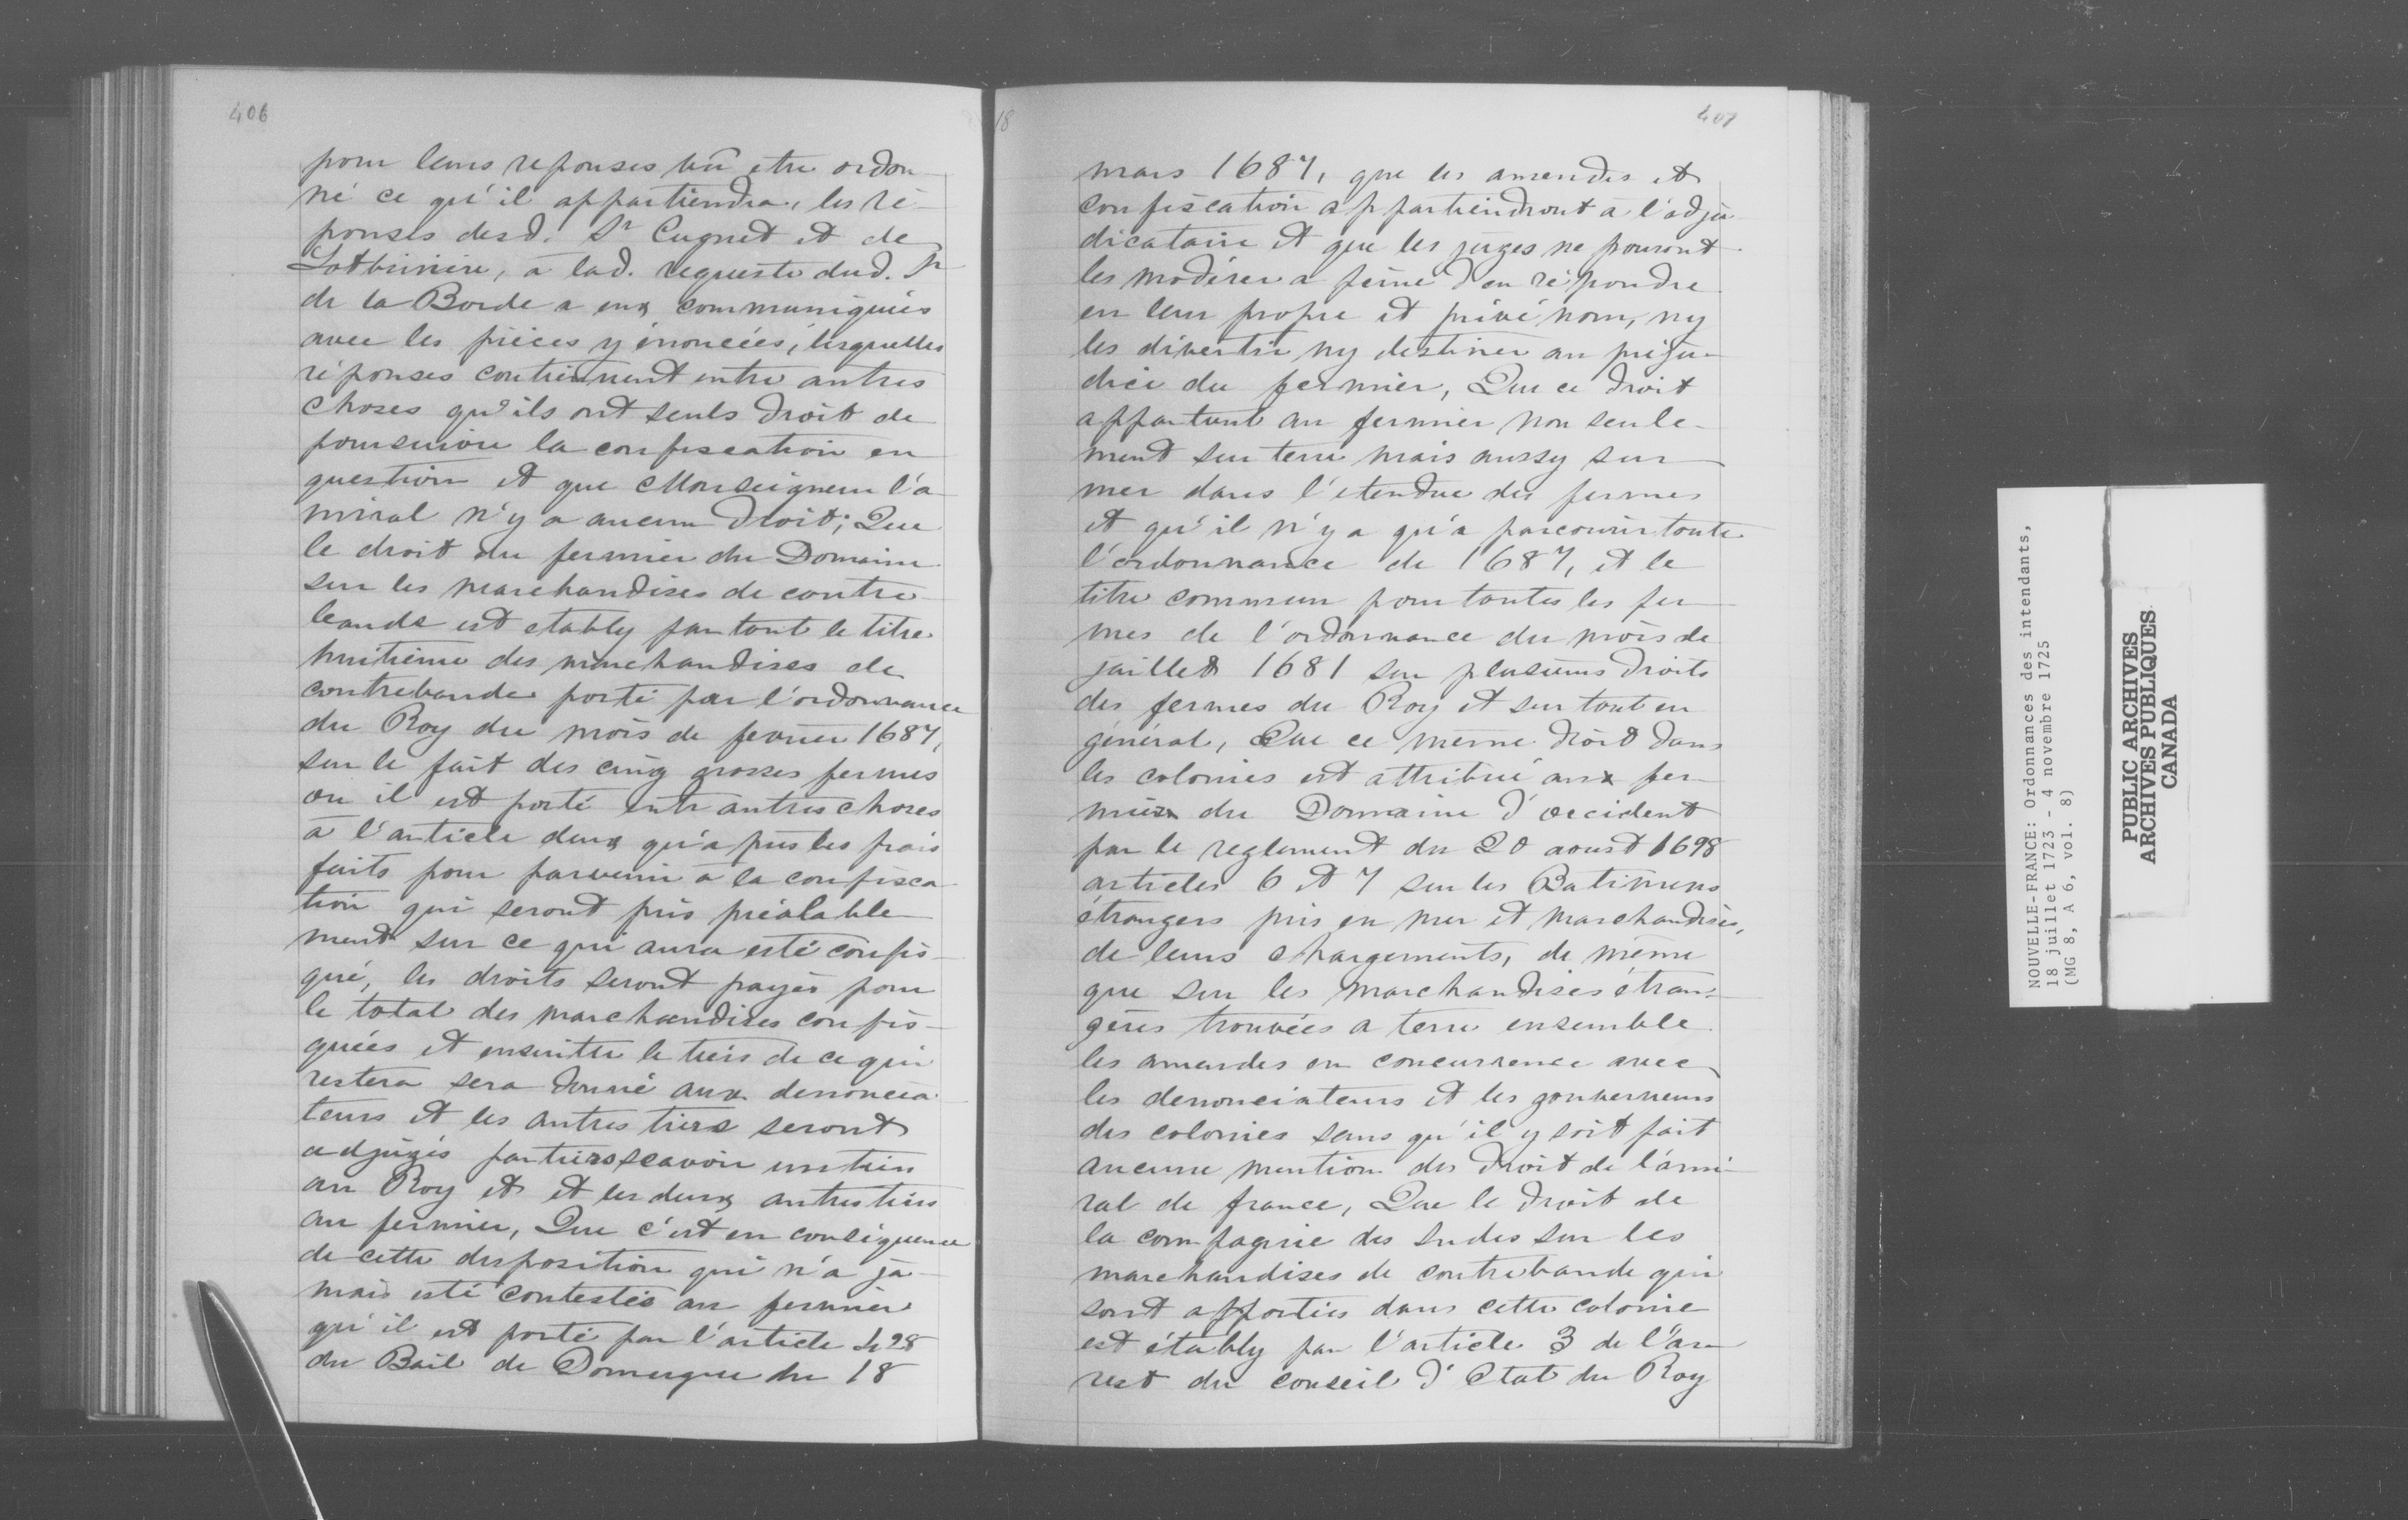 406
pour leurs reponses vû etre ordon-
né ce qu'il appartiendra, les ré-
ponses desd. Sr Cugnet et de
Lotbiniere, a lad. requeste dud. Sr
de la Borde a eux communiquées
avec les pièces y énoncées, lesquelles
réponses contiennent entre autres
choses qu'ils ont seuls droit de
poursuivre la confiscation en
question et que Monseigneur l'a-
miral n'y a aucun droit; Que
le droit du fermier du Domaine
sur les marchandises de contre-
bande est etably par tout le titre
huitième des marchandises de
contrebande porté par l'ordonnance
du Roy du mois de fevrier 1687,
sur le fait des cinq grosses fermes
ou il est porté entr'autres choses
à l'article deux qu'après les frais
faits pour parvenir à la confisca-
tion qui seront pris préalable-
ment sur ce qui aura esté confis-
qué, les droits seront payés pour
le total des marchandises confis-
quées et ensuitte le tiers de ce qui
restera sera donné aux denoncia-
teurs et les autres tiers seront
adjugés par tiers scavoir un tiers
au Roy et et les deux autres tiers
au fermier, Que c'est en conséquence
de cette disposition qui n'a ja-
mais esté contestés au fermier
qu'il est porté par l'article 428
du Bail de Domergue du 18
18
407
mars 1687, que les amendes et
confiscation appartiendront à l'adju-
dicataire et que les juges ne pouront
les modérer a peine d'en répondre
en leur propre et privé nom, ny
les divertir ny destiner au préju-
dice du fermier, Que ce droit
appartient au fermier non seule-
ment sur terre mais aussy sur
mer dans l'etendue des fermes
et qu'il n'y a qu'a parcourir toute
l'ordonnance de 1687, et le
titre commun pour toutes les fer-
mes de l'ordonnance du mois de
juillet 1681 sur plusieurs droits
des fermes du Roy et sur tout en
général, Que ce même droit dans
les colonies est attribué aux fer-
miers du Domaine d'occident
par le reglement du 20 aoust 1698
articles 6 et 7 sur les Batimens
étrangers pris en mer et marchandises,
de leurs chargements, de même
que sur les marchandises étran-
gères trouvées a terre ensemble
les amendes en concurrence avec
les denonciateurs et les gouverneurs
des colonies sans qu'il y soit fait
aucune mention du droit de l'ami-
ral de france, Que le droit de
la compagnie des Indes sur les
marchandises de contrebande qui
sont apportées dans cette colonie
est établly par l'article 3 de l'ar-
rest du conseil d'Etat du Roy
NOUVELLE-FRANCE: Ordonnances des intendants,
18 juillet 1723 - 4 novembre 1725
(MG 8, A 6, vol. 8)
PUBLIC ARCHIVES
ARCHIVES PUBLIQUES
CANADA